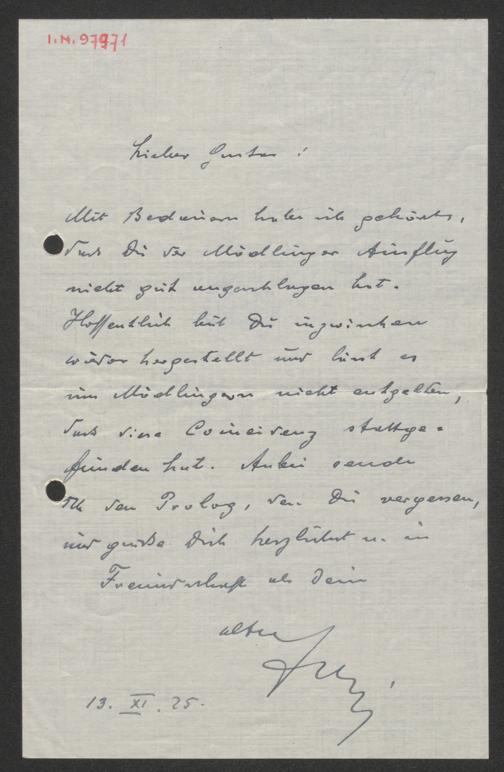 I.N. 97971
Lieber Gustav!
Mit Bedauern habe ich gehört,
dass Du der Mödlinger Ausflug
nicht gut angeschlagen hat.
Hoffentlich bist Du inzwischen
wieder hergestellt und lässt es
uns Mödlingern nicht entgelten,
dass diese Coincidenz stattge-
funden hat. Anbei sende
ich den Prolog, den Du vergessen,
und grüße Dich herzlichst u. in
Freundschaft als Dein
alter
13. XI. 25.